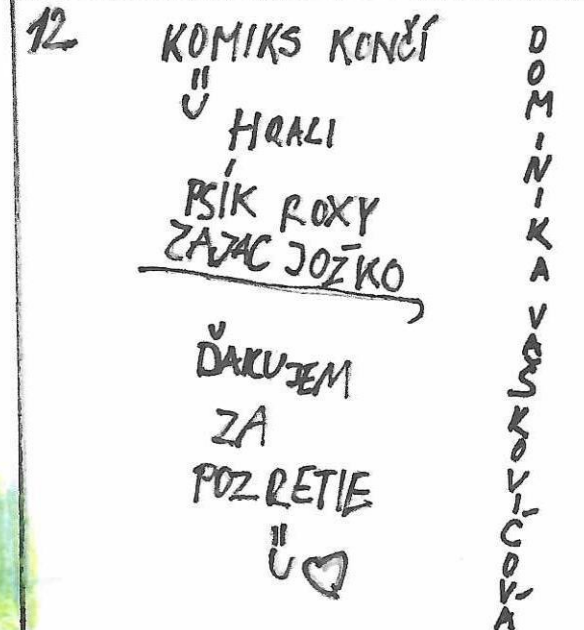 12
KOMIKS KONČÍ
HRALI
PSÍK ROXY
ZAJAC JOŽKO
ĎAKUJEM
ZA
POZRETIE
DOMINIKA VAŠKOVÍČOVÁ